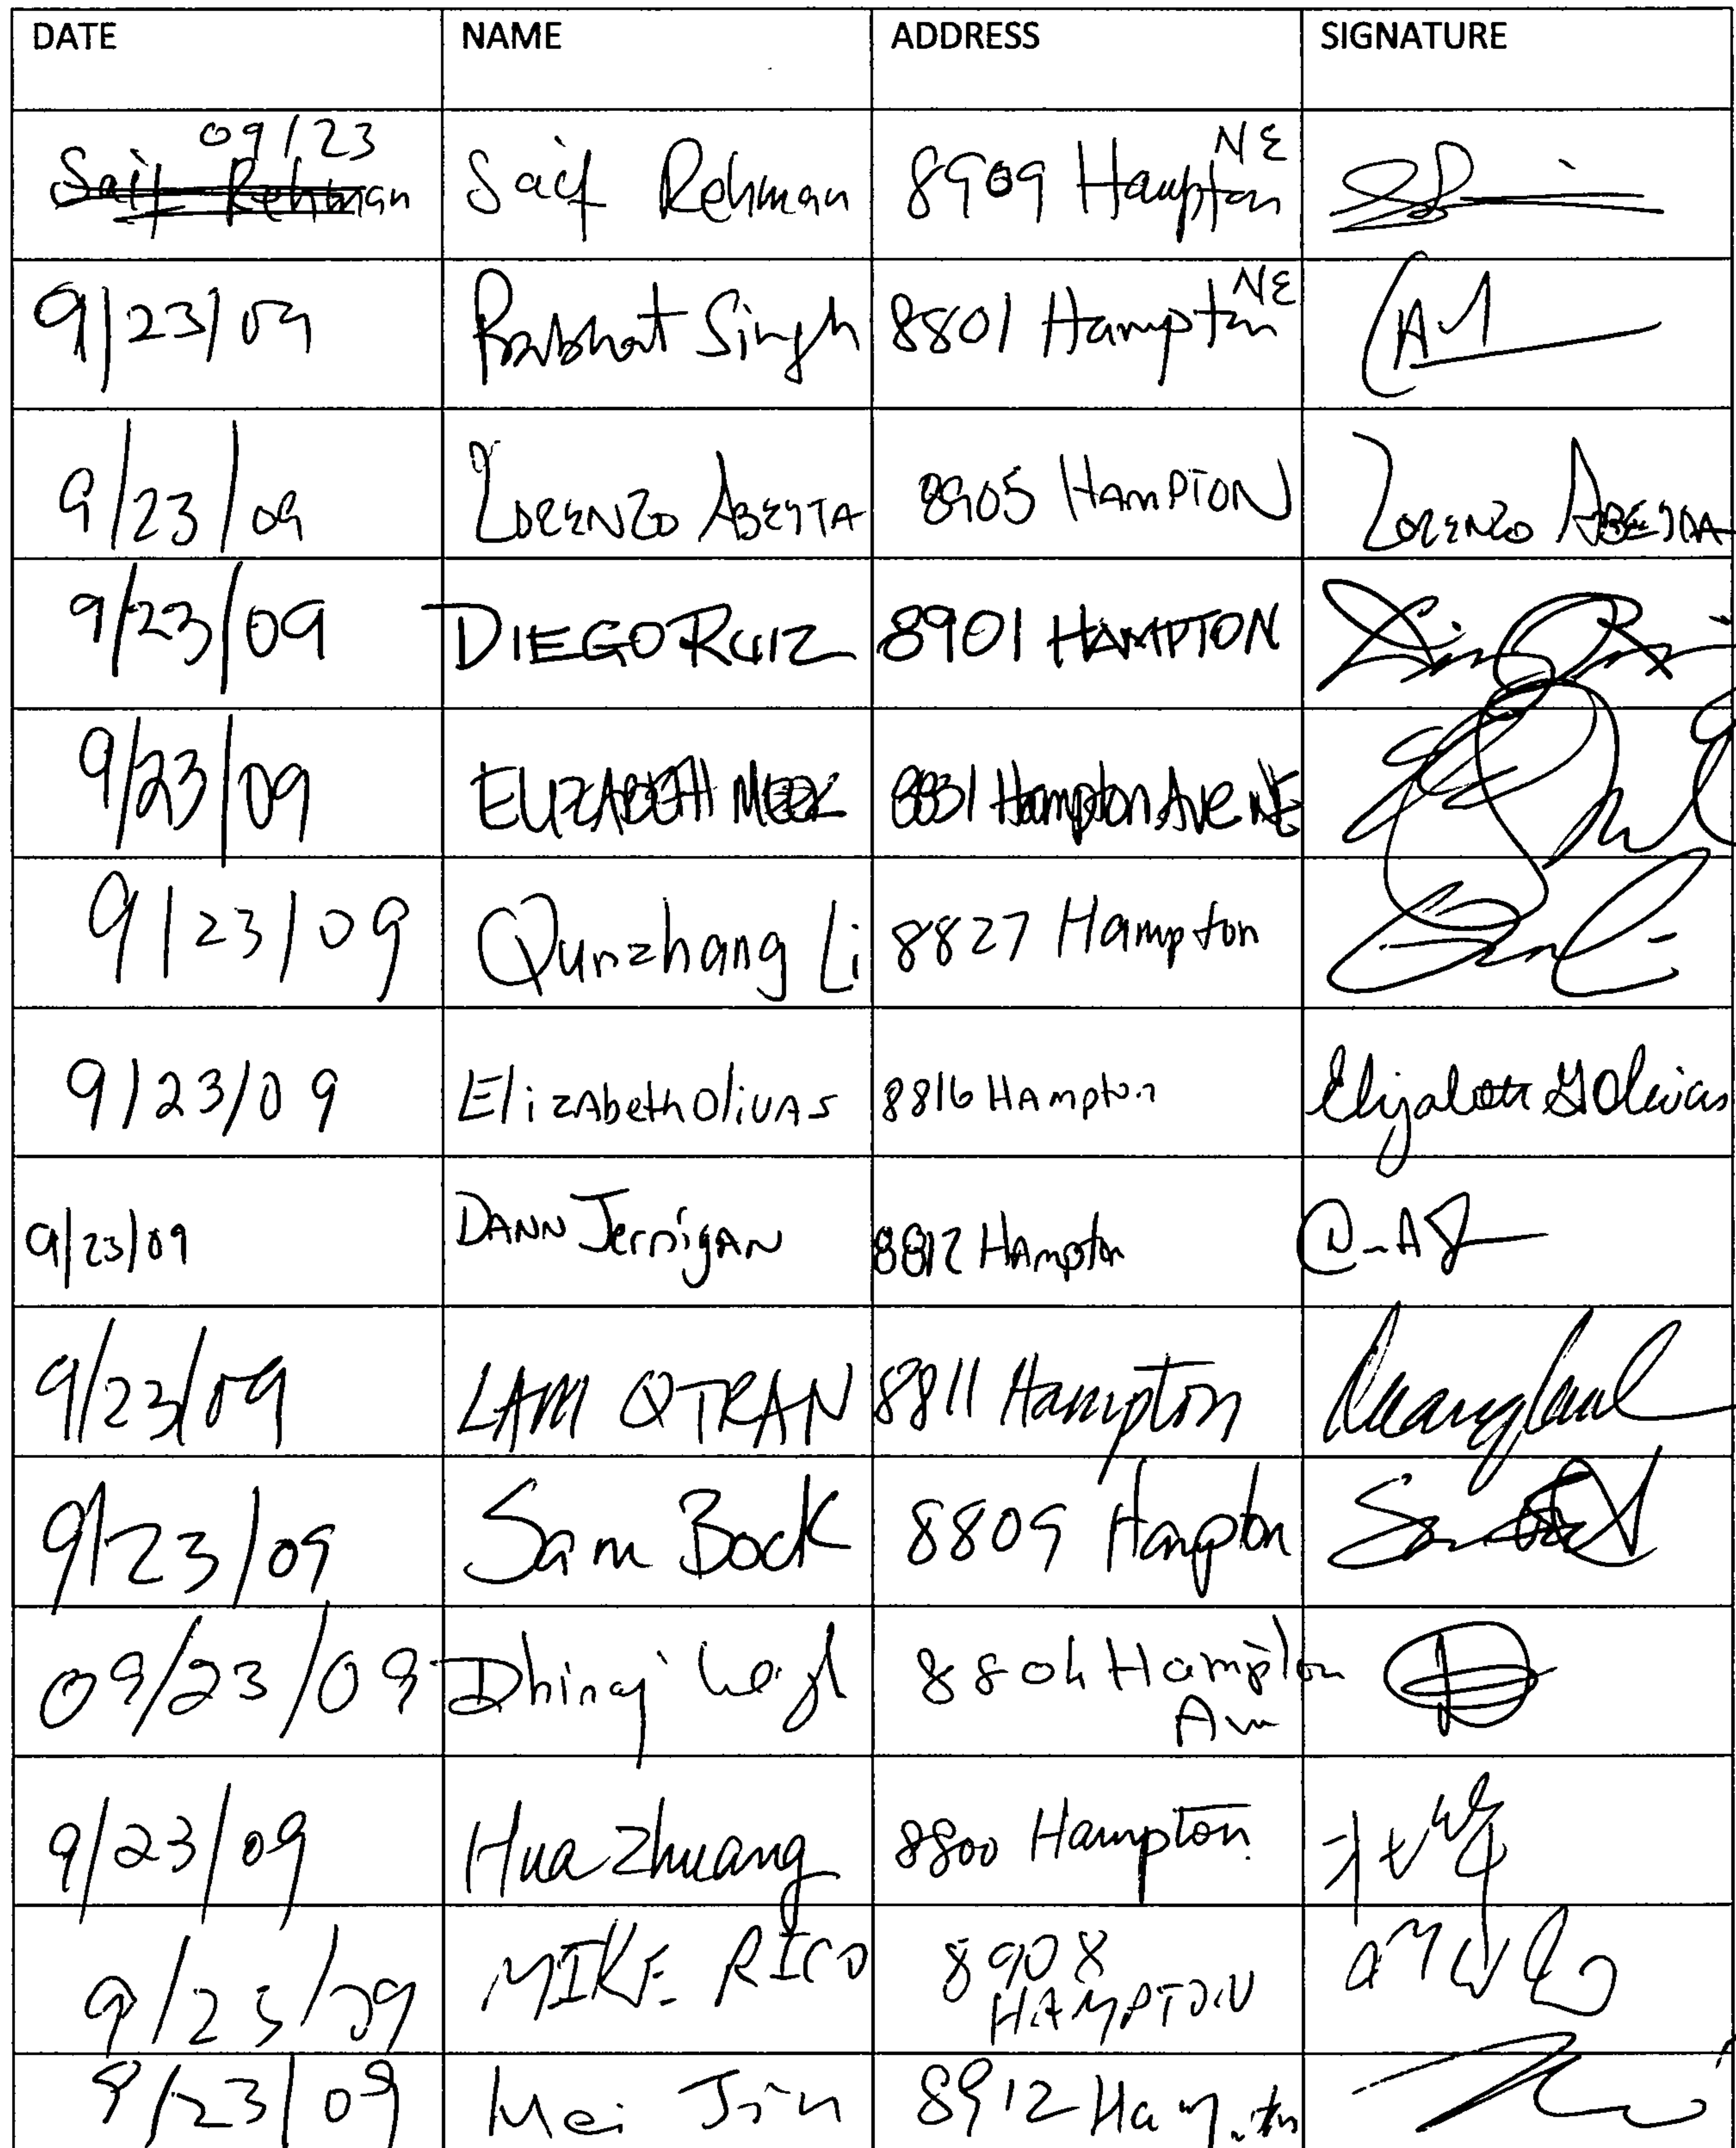 DATE NAME ADDRESS SIGNATURE
09/23
Saif Rehman Saif Rehman 8909 Hampton NE
9/23/09 Prabhat Singh 8801 Hampton NE
9/23/09 LORENZO ABEYTA 8905 HAMPTON LORENZO ABEYTA
9/23/09 DIEGO RUIZ 8901 HAMPTON
9/23/09 ELIZABETH MEEK 8831 Hampton Ave NE
9/23/09 Qunzhang Li 8827 Hampton
9/23/09 ElizAbeth OlivAs 8816 HAmpton Elizabeth G Olivas
9/23/09 DANN JernigAN 8812 HAmpton
9/23/09 LAM Q TRAN 8811 Hampton
9/23/09 Sam Bock 8809 Hampton
09/23/09 Dhiraj 8804 Hampton
Ave
9/23/09 Hua Zhuang 8800 Hampton
9/23/09 MIKE RICO 8908
HAMPTON
9/23/09 Mei Jin 8912 Hampton